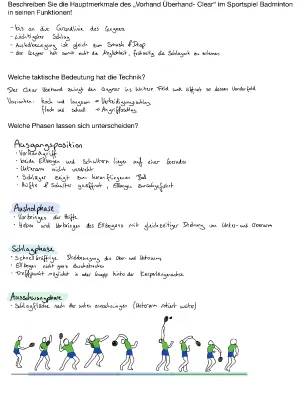 Beschreiben Sie die Hauptmerkmale des „Vorhand Überhand- Clear“ im Sportspiel Badminton
in seinen Funktionen!
- bis an die Grundlinie des Gegners
- wichtigster Schlag
- Ausholbewegung ist gleich zum Smash & Drop
- der Gegner hat somit nicht die Möglichkeit, frühzeitig die Schlagart zu erkennen
Welche taktische Bedeutung hat die Technik?
Der Clear Überhand zwingt den Gegner ins hintere Feld und öffnet so dessen Vorderfeld
Varianten: hoch und langsam → Verteidigungsschlag
flach und schnell → Angriffsschlag
Welche Phasen lassen sich unterscheiden?
Ausgangsposition
• Vorhandgriff
• beide Ellbogen und Schultern liegen auf einer Geraden
• Unterarm nicht verdreht
• Schläger zeigt zum heranfliegenden Ball
• Hüfte & Schulter geöffnet, Ellbogen zurückgeführt
Ausholphase
• Vorbringen der Hüfte
• Heben und Vorbringen des Ellbogens mit gleichzeitiger Drehung von Unter- und Oberarm
Schlagphase
• schnellkräftige Drehbewegung des Ober- und Unterarms
• Ellbogen nicht ganz durchstrecken
• Treffpunkt möglichst in oder knapp hinter der Körperlängsachse
Ausschwungphase
• Schlagfläche nach der unten ausschwingen (Unterarm rotiert weiter)